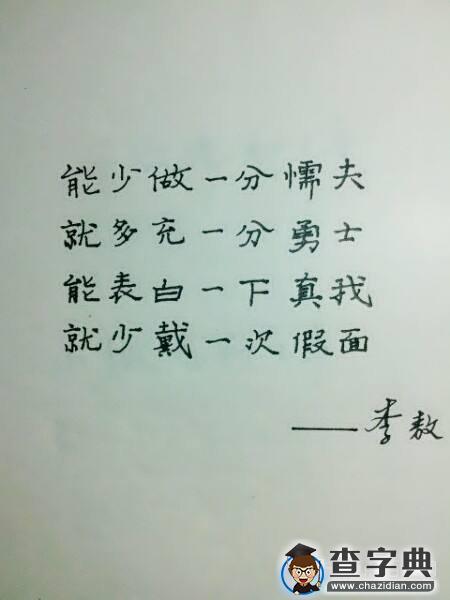 能少做一分懦夫
就多充一分勇士
能表白一下真找
就少戴一次假面
——李敖
查字典
www.chazidian.com